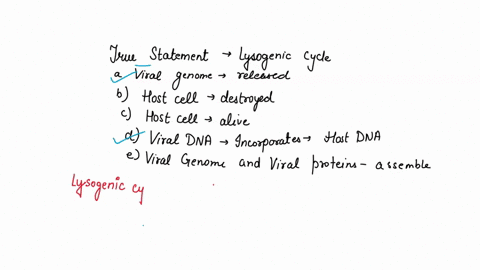 True Statement → Lysogenic Cycle
a Viral genome → released
b) Host cell → destroyed
c) Host cell → alive
d) Viral DNA → Incorporates → Host DNA
e) Viral Genome and Viral proteins - assemble
Lysogenic cy